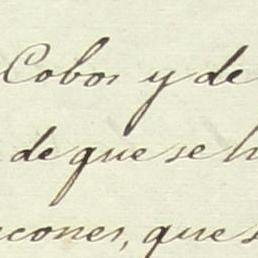 Cobos y de
de que se h
acones, que s